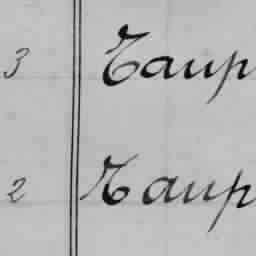 3 Taup
2 Taup